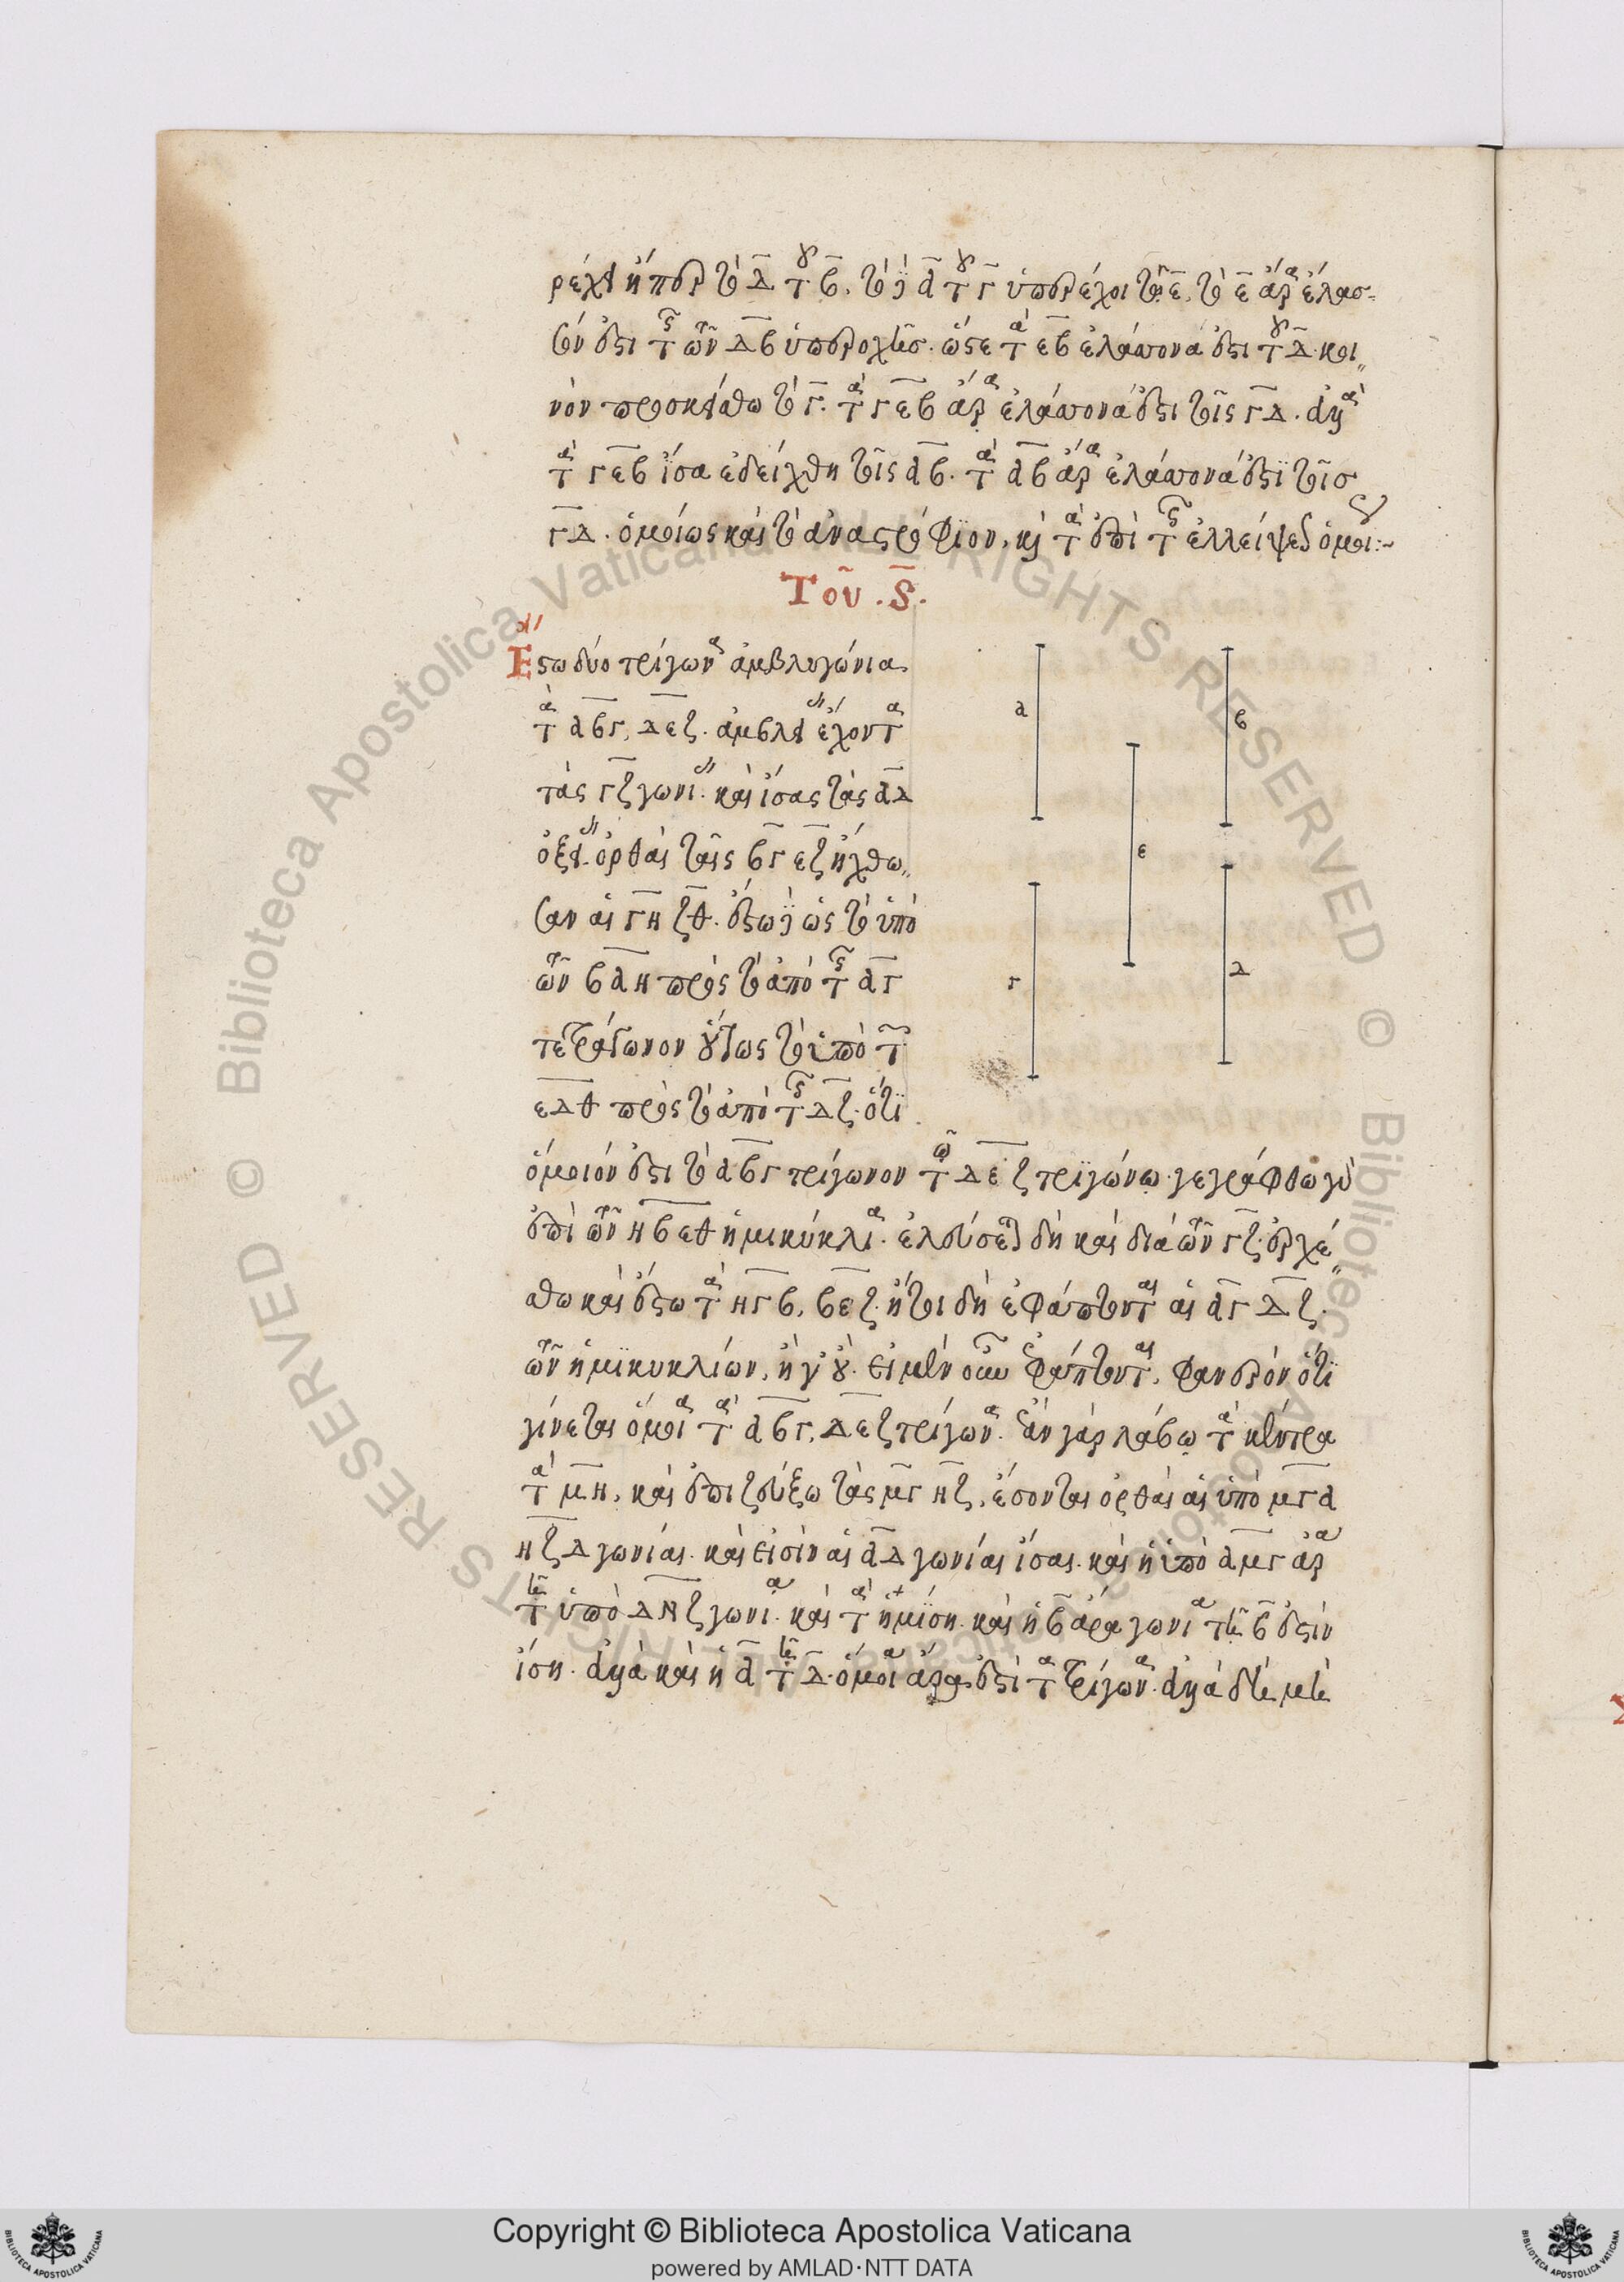 ρέχει ἤπερ τὸ Δ τοῦ Β. τὸ δὲ Α τοῦ Γ ὑπερέχει τῷ Ε. τὸ Ε ἄρα ἔλασ-
σόν ἐστι τῆς τῶν ΔΒ ὑπεροχῆς. ὥστε τὰ ΕΒ ἐλάττονά ἐστι τοῦ Δ. κοι-
νὸν προσκείσθω τὸ Γ. τὰ ΓΕΒ ἄρα ἐλάττονά ἐστι τοῖς ΓΔ. ἀλλὰ
τὰ ΓΕΒ ἴσα ἐδείχθη τοῖς ΑΒ. τὰ ΑΒ ἄρα ἐλάττονά ἐστι τοῖς
ΓΔ. ὁμοίως καὶ τὸ ἀναστρόφιον. καὶ τὰ ἐπὶ τῆς ἐλλείψεως ὁμοι:~
Τοῦ .ς.
Ἔστω δύο τρίγωνα ἀμβλυγώνια
τὰ ΑΒΓ, ΔΕΖ. ἀμβλείας ἔχοντα
τὰς ΓΖ γωνίας. καὶ ἴσας τὰς ΑΔ
ὀξείας. ὀρθαὶ ταῖς ΒΓ ΕΖ ἤχθω-
σαν αἱ ΓΗ ΖΘ. ἔστω δὲ ὡς τὸ ὑπὸ
τῶν ΒΑΗ πρὸς τὸ ἀπὸ τῆς ΑΓ
τετράγωνον οὕτως τὸ ὑπὸ τῶν
ΕΔΘ πρὸς τὸ ἀπὸ τῆς ΔΖ. ὅτι
ὅμοιόν ἐστι τὸ ΑΒΓ τρίγωνον τῷ ΔΕΖ τριγώνῳ. γεγράφθω γὰρ
ἐπὶ τῶν ΗΒ ΕΘ ἡμικύκλια. ἐλεύσεται δὴ καὶ διὰ τῶν ΓΖ. ἐρχέ-
σθω καὶ ἔστω τὰ ΗΓΒ, ΒΕΖ. ἤτοι δὴ ἐφάπτονται αἱ ΑΓ ΔΖ
τῶν ἡμικυκλίων, ἢ οὔ. εἰ μὲν οὖν ἐφάπτονται, φανερὸν ὅτι
γίνεται ὅμοια τὰ ΑΒΓ, ΔΕΖ τρίγωνα. ἐὰν γὰρ λάβω τὰ κέντρα
τὰ ΜΝ, καὶ ἐπιζεύξω τὰς ΜΓ ΝΖ, ἔσονται ὀρθαὶ αἱ ὑπὸ ΜΓΑ
ΝΖΔ γωνίαι. καὶ εἰσὶν αἱ ΑΔ γωνίαι ἴσαι. καὶ ἡ ὑπὸ ΑΜΓ ἄρα
τῇ ὑπὸ ΔΝΖ γωνία. καὶ τὰ ἡμίση. καὶ ἡ Β ἄρα γωνία τῇ Β ἐστὶν
ἴση. ἀλλὰ καὶ ἡ Α τῇ Δ. ὅμοια ἄρα ἐστὶ τὰ τρίγωνα. ἀλλὰ δὴ μὴ
α
β
ε
γ
δ
© Biblioteca Apostolica Vaticana ALL RIGHTS RESERVED © Biblioteca Apostolica Vaticana ALL RIGHTS RESERVED
Copyright © Biblioteca Apostolica Vaticana
powered by AMLAD·NTT DATA
BIBLIOTECA APOSTOLICA VATICANA
BIBLIOTECA APOSTOLICA VATICANA